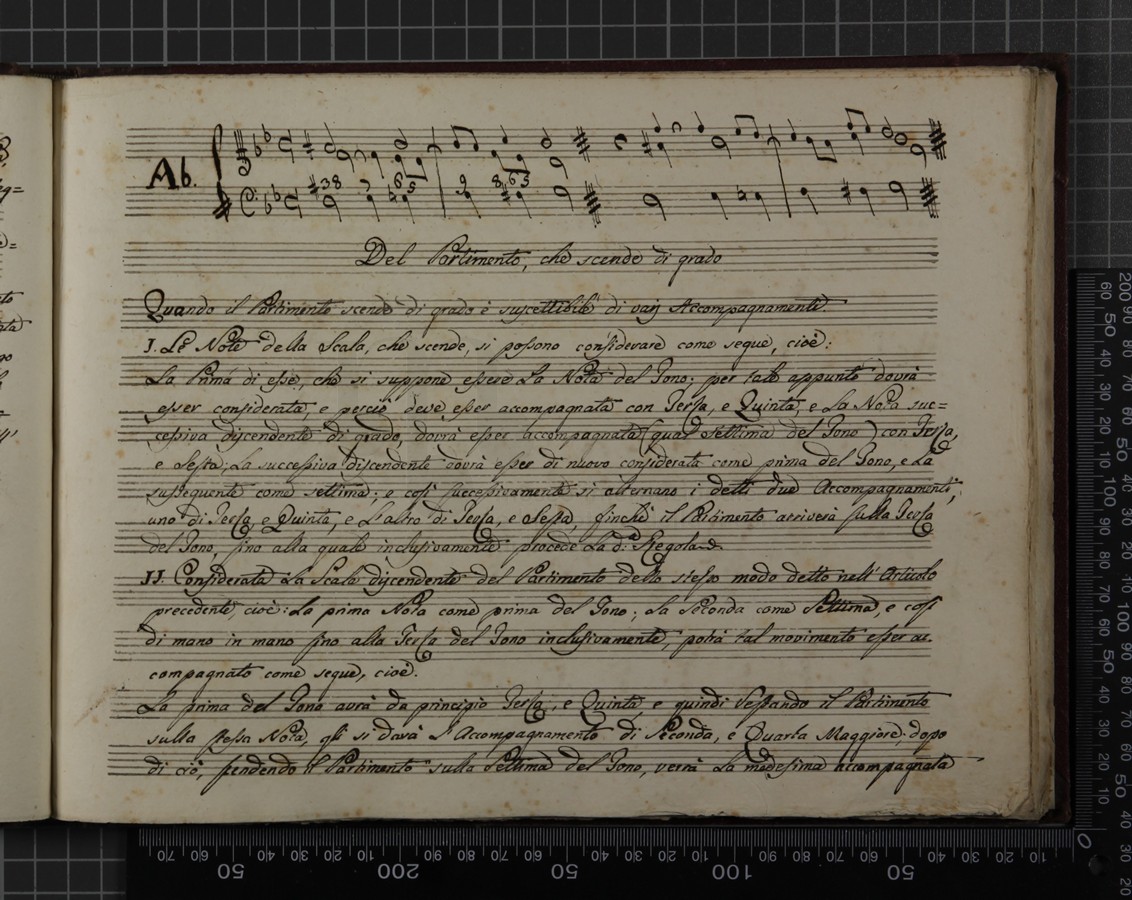 Ab.
#38 65 9 8 65
Del Partimento, che scende di grado
Quando il Partimento scende di grado è suscettibile di varj Accompagnamenti.
I. Le Note della Scala, che scende, si possono considerare come segue, cioè:
La Prima di esse, che si suppone essere La Nota del Tono; per tale appunto dovrà
esser considerata, e perciò deve esser accompagnata con Terza, e Quinta, e La Nota suc=
cessiva discendente di grado, dovrà esser accompagnata (qual settima del Tono) con Terza,
e Sesta; La successiva discendente dovrà esser di nuovo considerata come prima del Tono, e La
susseguente come settima; e così successivamente si alternano i detti due Accompagnamenti,
uno di Terza, e Quinta, e L'altro di Terza, e Sesta, finchè il Partimento arriverà sulla Terza
del Tono, sino alla quale inclusivamente procede La d.a Regola.
II. Considerata La Scala discendente del Partimento dello stesso modo detto nell'Articolo
precedente, cioè: La prima Nota come prima del Tono; La Seconda come Settima, e così
di mano in mano sino alla Terza del Tono inclusivamente, potrà tal movimento esser ac=
compagnato come segue, cioè.
La prima del Tono avrà da principio Terza, e Quinta, e quindi restando il Partimento
sulla stessa Nota, gli si darà L'Accompagnamento di Seconda, e Quarta Maggiore; dopo
di ciò, scendendo il Partimento sulla Settima del Tono, verrà La medesima accompagnata